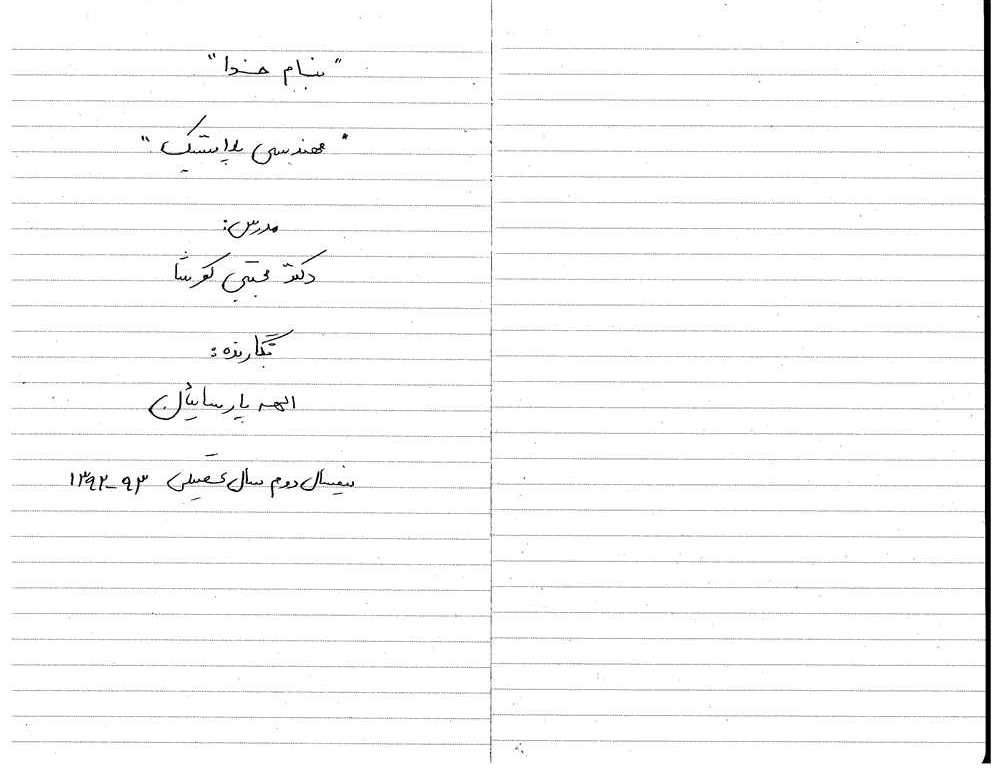 "بنام خدا"
"مهندسی پلاستیک"
مدرس:
دکتر مجتبی کوشا
نگارنده:
الهه پارسائیان
نیمسال دوم سال تحصیلی ۹۳-۱۳۹۲